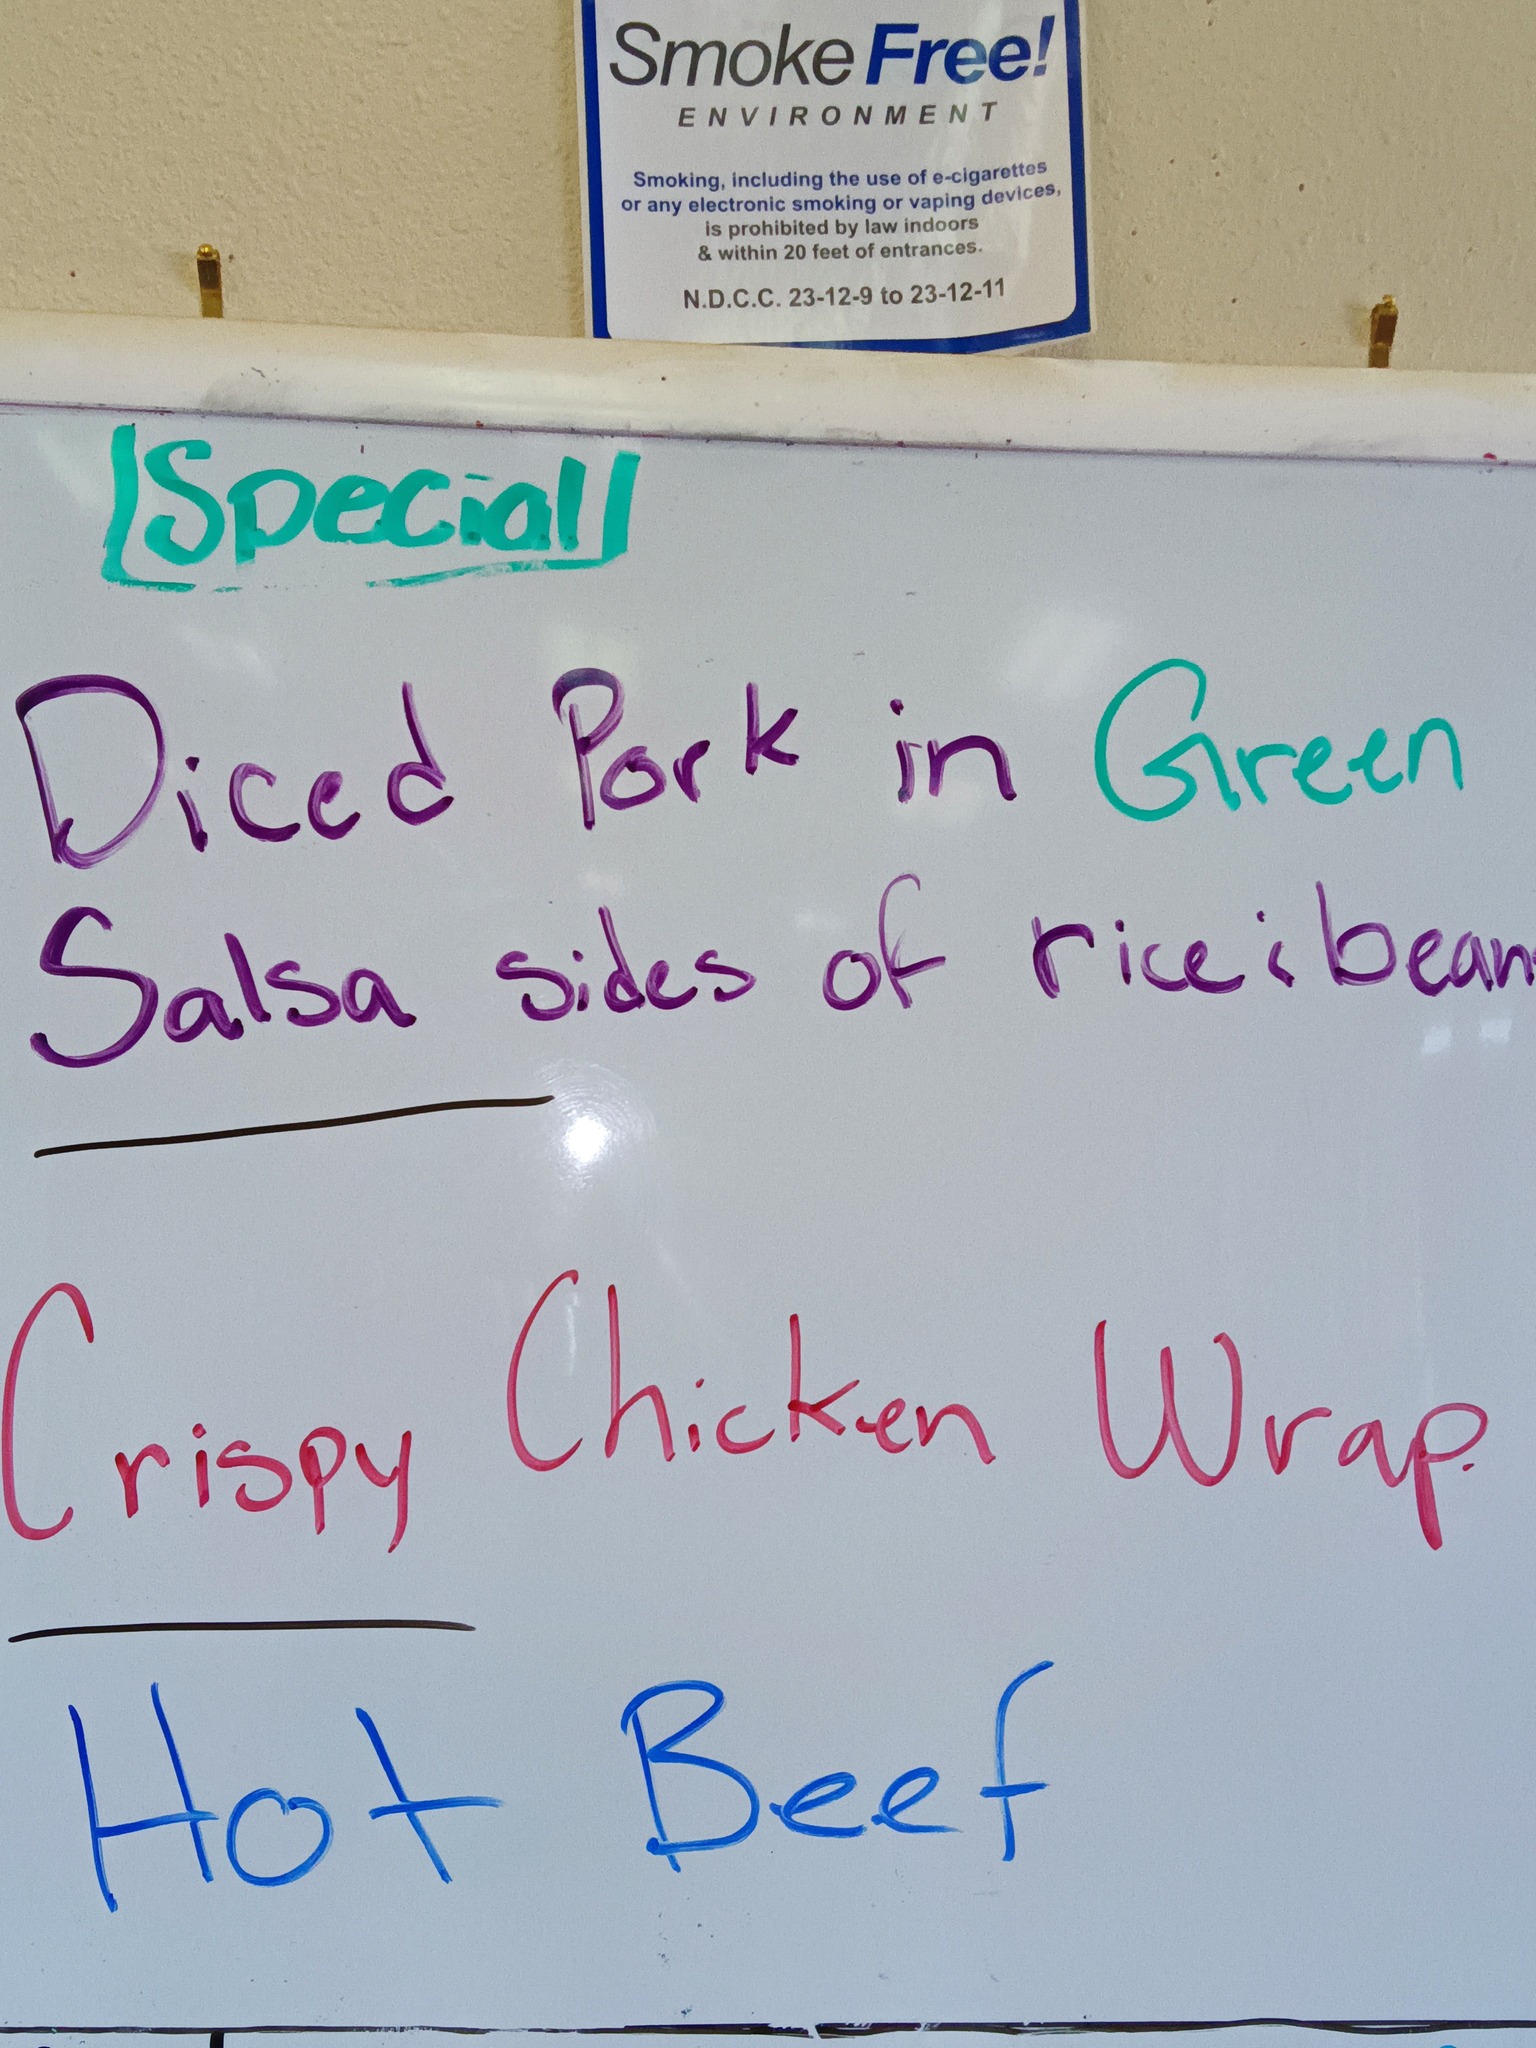 Smoke Free!
ENVIRONMENT
Smoking, including the use of e-cigarettes
or any electronic smoking or vaping devices,
is prohibited by law indoors
& within 20 feet of entrances.
N.D.C.C. 23-12-9 to 23-12-11
Special
Diced Pork in Green
Salsa sides of rice & bean
Crispy Chicken Wrap.
Hot Beef